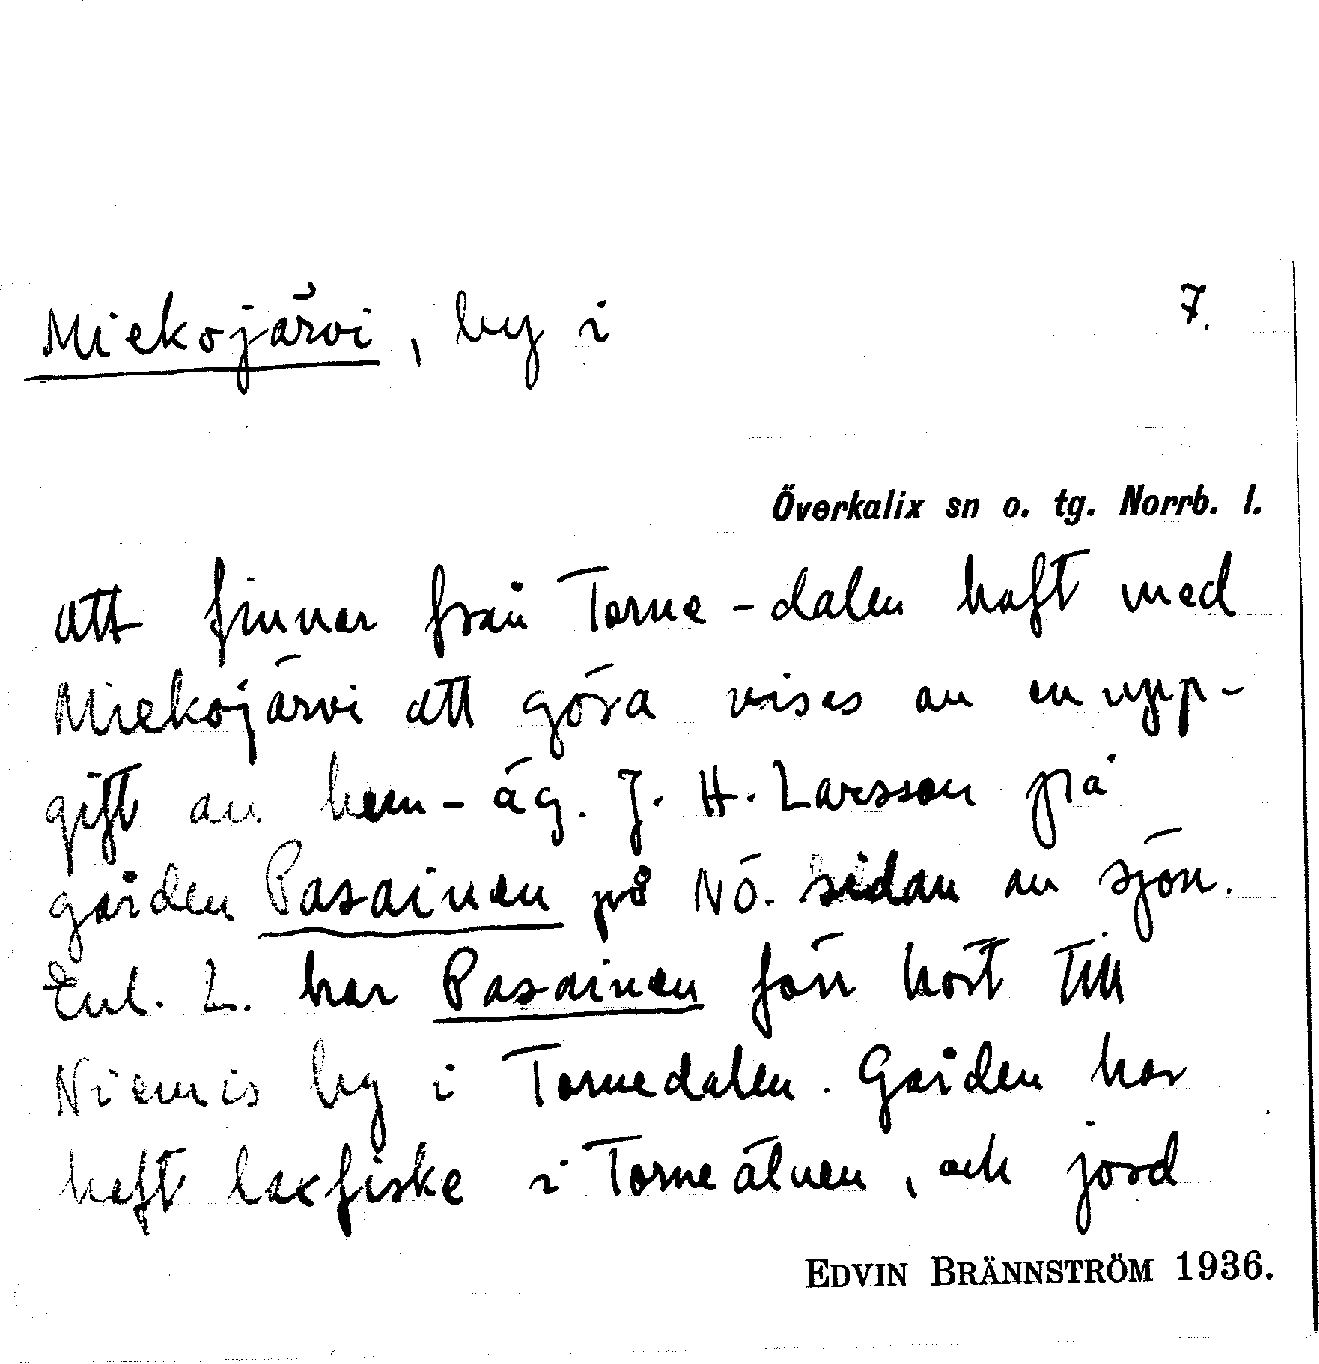 Miekojärvi, by i 7.
Överkalix sn o. tg. Norrb. l.
att finnar från Torne-dalen haft med
Miekojärvi att göra vises av en upp-
gift av hem-äg. J. H. Larsson på
gården Pasainen på NÖ. sidan av sjön.
Enl. L. har Pasainen förr hört till
Niemis by i Tornedalen. Gården har
haft laxfiske i Torneälven, och jord
EDVIN BRÄNNSTRÖM 1936.